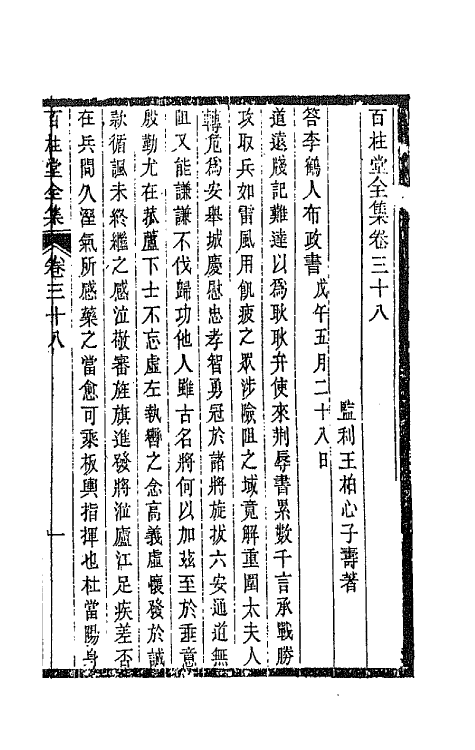 百柱堂全集卷三十八
監利王柏心子壽著
答李鶴人布政書　戊午五月二十八日
道遠牋記難達以爲耿耿弁使來荆辱書累數千言承戰勝
攻取兵如雷風用飢疲之眾涉險阻之域竟解重圍太夫人
轉危爲安舉城慶慰忠孝智勇冠於諸將旋拔六安通道無
阻又能謙謙不伐歸功他人雖古名將何以加茲至於垂意
殷勤尤在菰蘆下士不忘虛左執轡之念高義虛懷發於誠
款循諷未終繼之感泣敬審旌旗進發將涖廬江足疾差否
在兵間久溼氣所感藥之當愈可乘板輿指揮也杜當陽身
百柱堂全集
卷三十八
一